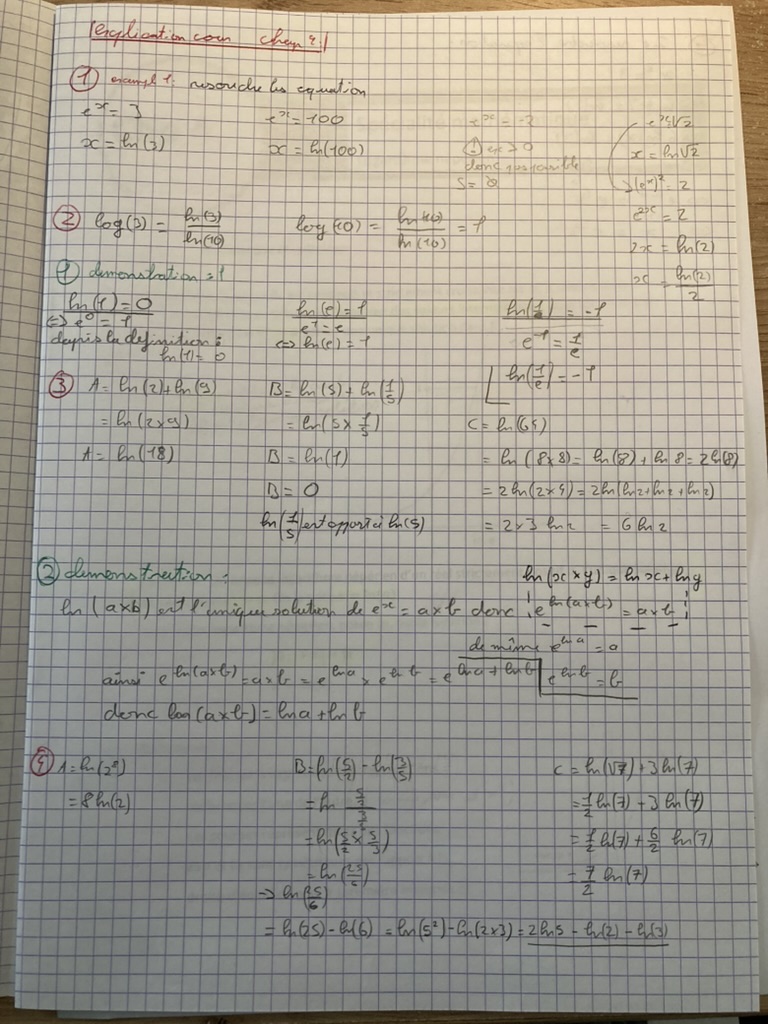 explication cour chap 4.
① exempl 1: resoudre les equation
e^x = 3
x = ln(3)
e^x = 100
x = ln(100)
e^x = -2
e^x > 0
donc impossible
S = ∅
e^x = √2
x = ln√2
(e^x)² = 2
e^2x = 2
2x = ln(2)
x = ln(2)/2
② log(3) = ln(3)/ln(10)
log(10) = ln(10)/ln(10) = 1
① demonstration = 1
ln(1) = 0
⇔ e^0 = 1
dapris la definition :
ln(1) = 0
ln(e) = 1
e^1 = e
⇔ ln(e) = 1
ln(1/e) = -1
e^-1 = 1/e
ln(1/e) = -1
③ A = ln(2) + ln(9)
= ln(2x9)
A = ln(18)
B = ln(5) + ln(1/5)
= ln(5 x 1/5)
B = ln(1)
B = 0
ln(1/5) est opposé à ln(5)
C = ln(64)
= ln(8x8) = ln(8) + ln 8 = 2ln(8)
= 2ln(2x4) = 2ln(ln2 + ln2 + ln2)
= 2x3 ln2 = 6 ln2
② demonstration :
ln(x x y) = ln x + ln y
ln(axb) est l'unique solution de e^x = axb donc e^ln(axb) = axb
de même e^ln a = a
e^ln b = b
ainsi e^ln(axb) = axb = e^ln a x e^ln b = e^ln a + ln b
donc ln(axb) = ln a + ln b
④ A = ln(2^8)
= 8 ln(2)
B = ln(5/2) - ln(3/5)
= ln (5/2)/(3/5)
= ln(5/2 x 5/3)
= ln(25/6)
⇒ ln(25/6)
= ln(25) - ln(6) = ln(5²) - ln(2x3) = 2ln5 - ln(2) - ln(3)
C = ln(√7) + 3ln(7)
= 1/2 ln(7) + 3 ln(7)
= 1/2 ln(7) + 6/2 ln(7)
= 7/2 ln(7)